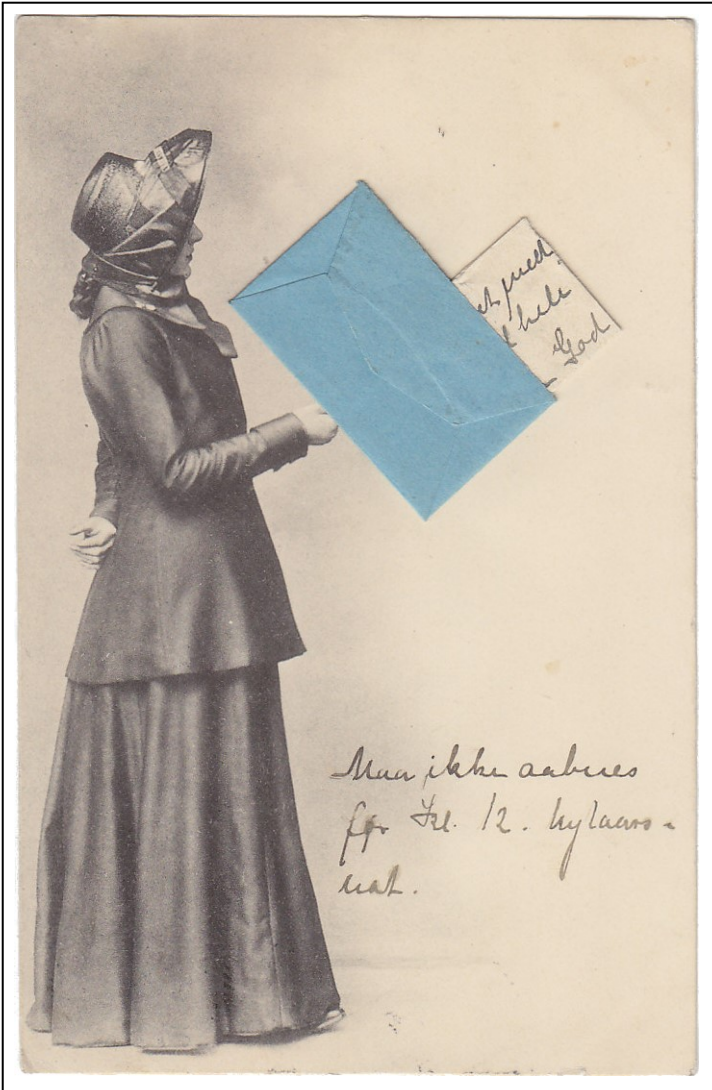 hele
God
Maa ikke aabnes
før Kl. 12. Nytaars-
nat.